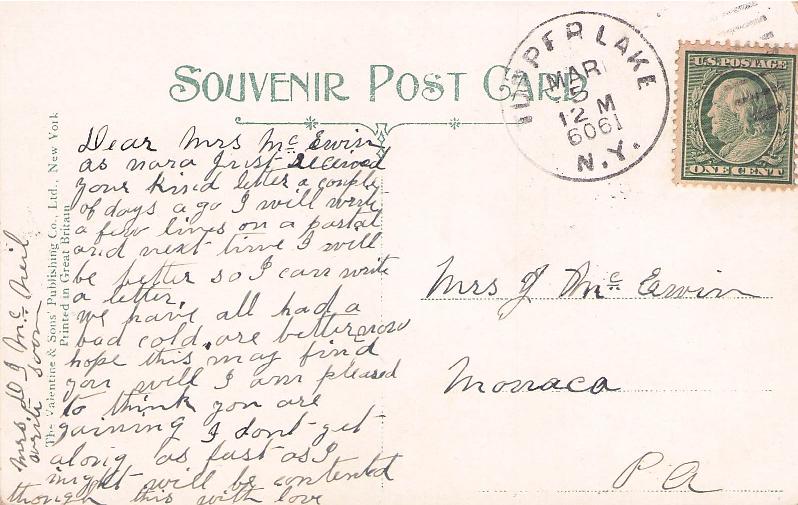 SOUVENIR POST CARD
TUPPER LAKE
MAR
5
12 M
1909
N.Y.
U.S. POSTAGE
ONE CENT
The Valentine & Sons' Publishing Co., Ltd., New York
Printed in Great Britain
Dear Mrs Mc Ewin
as nora Just received
your kind letter a couple
of days ago I will write
a few lines on a postal
and next time I will
be better so I can write
a letter.
we have all had a
bad cold, are better now
hope this may find
you well I am pleased
to think you are
gaining I dont get
along as fast as I
might will be contented
though this with love
Mrs. D J Mc Neil
write soon
Mrs J Mc Ewin
Monaca
PA